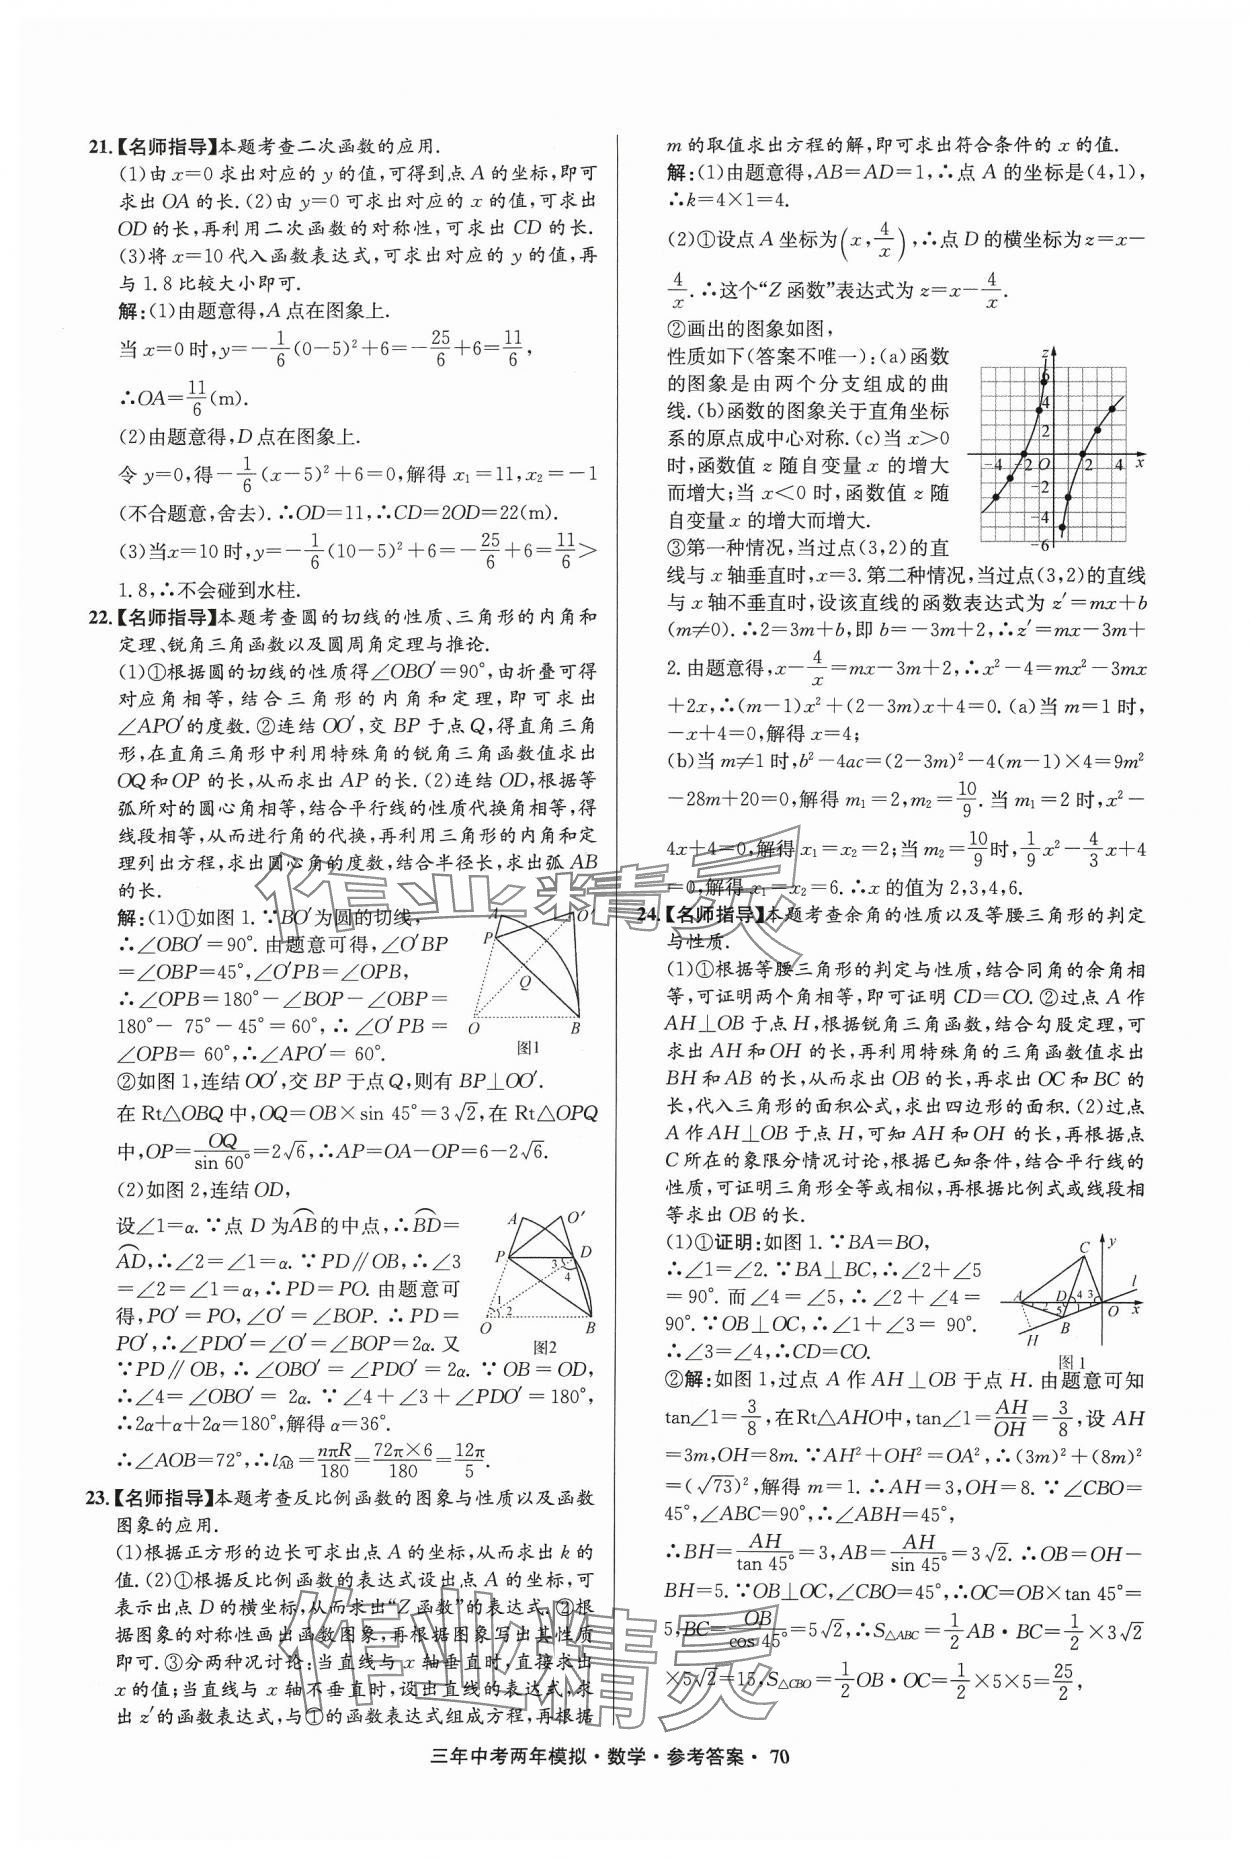 21.【名师指导】本题考查二次函数的应用.
(1)由x=0求出对应的y的值,可得到点A的坐标,即可
求出OA的长.(2)由y=0可求出对应的x的值,可求出
OD的长,再利用二次函数的对称性,可求出CD的长.
(3)将x=10代入函数表达式,可求出对应的y的值,再
与1.8比较大小即可.
解:(1)由题意得,A点在图象上.
当x=0时,y=-1/6(0-5)²+6=-25/6+6=11/6,
∴OA=11/6(m).
(2)由题意得,D点在图象上.
令y=0,得-1/6(x-5)²+6=0,解得x₁=11,x₂=-1
(不合题意,舍去).∴OD=11,∴CD=2OD=22(m).
(3)当x=10时,y=-1/6(10-5)²+6=-25/6+6=11/6>
1.8,∴不会碰到水柱.
22.【名师指导】本题考查圆的切线的性质、三角形的内角和
定理、锐角三角函数以及圆周角定理与推论.
(1)①根据圆的切线的性质得∠OBO′=90°,由折叠可得
对应角相等,结合三角形的内角和定理,即可求出
∠APO′的度数.②连结OO′,交BP于点Q,得直角三角
形,在直角三角形中利用特殊角的锐角三角函数值求出
OQ和OP的长,从而求出AP的长.(2)连结OD,根据等
弧所对的圆心角相等,结合平行线的性质代换角相等,得
线段相等,从而进行角的代换,再利用三角形的内角和定
理列出方程,求出圆心角的度数,结合半径长,求出弧AB
的长.
解:(1)①如图1.∵BO′为圆的切线,
∴∠OBO′=90°.由题意可得,∠O′BP
=∠OBP=45°,∠O′PB=∠OPB,
∴∠OPB=180°-∠BOP-∠OBP=
180°-75°-45°=60°,∴∠O′PB=
∠OPB=60°,∴∠APO′=60°.
A O′ P Q O B
图1
②如图1,连结OO′,交BP于点Q,则有BP⊥OO′.
在Rt△OBQ中,OQ=OB×sin 45°=3√2,在Rt△OPQ
中,OP=OQ/sin 60°=2√6,∴AP=OA-OP=6-2√6.
(2)如图2,连结OD,
设∠1=α.∵点D为⌒AB的中点,∴⌒BD=
⌒AD,∴∠2=∠1=α.∵PD∥OB,∴∠3
=∠2=∠1=α,∴PD=PO.由题意可
得,PO′=PO,∠O′=∠BOP.∴PD=
PO′,∴∠PDO′=∠O′=∠BOP=2α.又
A O′ P D 3 4 1 2 O B
图2
∵PD∥OB,∴∠OBO′=∠PDO′=2α.∵OB=OD,
∴∠4=∠OBO′=2α.∵∠4+∠3+∠PDO′=180°,
∴2α+α+2α=180°,解得α=36°.
∴∠AOB=72°,∴l⌒AB=nπR/180=72π×6/180=12π/5.
23.【名师指导】本题考查反比例函数的图象与性质以及函数
图象的应用.
(1)根据正方形的边长可求出点A的坐标,从而求出k的
值.(2)①根据反比例函数的表达式设出点A的坐标,可
表示出点D的横坐标,从而求出“Z函数”的表达式.②根
据图象的对称性画出函数图象,再根据图象写出其性质
即可.③分两种况讨论:当直线与x轴垂直时,直接求出
x的值;当直线与x轴不垂直时,设出直线的表达式,求
出z′的函数表达式,与①的函数表达式组成方程,再根据
m的取值求出方程的解,即可求出符合条件的x的值.
解:(1)由题意得,AB=AD=1,∴点A的坐标是(4,1),
∴k=4×1=4.
(2)①设点A坐标为(x,4/x),∴点D的横坐标为z=x-
4/x.∴这个“Z函数”表达式为z=x-4/x.
②画出的图象如图,
性质如下(答案不唯一):(a)函数
的图象是由两个分支组成的曲
线.(b)函数的图象关于直角坐标
系的原点成中心对称.(c)当x>0
时,函数值z随自变量x的增大
而增大;当x<0时,函数值z随
自变量x的增大而增大.
z 6 4 2 -4 -2 O 2 4 x -2 -4 -6
③第一种情况,当过点(3,2)的直
线与x轴垂直时,x=3.第二种情况,当过点(3,2)的直线
与x轴不垂直时,设该直线的函数表达式为z′=mx+b
(m≠0).∴2=3m+b,即b=-3m+2,∴z′=mx-3m+
2.由题意得,x-4/x=mx-3m+2,∴x²-4=mx²-3mx
+2x,∴(m-1)x²+(2-3m)x+4=0.(a)当m=1时,
-x+4=0,解得x=4;
(b)当m≠1时,b²-4ac=(2-3m)²-4(m-1)×4=9m²
-28m+20=0,解得m₁=2,m₂=10/9.当m₁=2时,x²-
4x+4=0,解得x₁=x₂=2;当m₂=10/9时,1/9x²-4/3x+4
=0,解得x₁=x₂=6.∴x的值为2,3,4,6.
24.【名师指导】本题考查余角的性质以及等腰三角形的判定
与性质.
(1)①根据等腰三角形的判定与性质,结合同角的余角相
等,可证明两个角相等,即可证明CD=CO.②过点A作
AH⊥OB于点H,根据锐角三角函数,结合勾股定理,可
求出AH和OH的长,再利用特殊角的三角函数值求出
BH和AB的长,从而求出OB的长,再求出OC和BC的
长,代入三角形的面积公式,求出四边形的面积.(2)过点
A作AH⊥OB于点H,可知AH和OH的长,再根据点
C所在的象限分情况讨论,根据已知条件,结合平行线的
性质,可证明三角形全等或相似,再根据比例式或线段相
等求出OB的长.
(1)①证明:如图1.∵BA=BO,
∴∠1=∠2.∵BA⊥BC,∴∠2+∠5
=90°.而∠4=∠5,∴∠2+∠4=
90°.∵OB⊥OC,∴∠1+∠3=90°.
∴∠3=∠4,∴CD=CO.
y C l A D 4 3 2 5 1 O x H B
图1
②解:如图1,过点A作AH⊥OB于点H.由题意可知
tan∠1=3/8,在Rt△AHO中,tan∠1=AH/OH=3/8,设AH
=3m,OH=8m.∵AH²+OH²=OA²,∴(3m)²+(8m)²
=(√73)²,解得m=1.∴AH=3,OH=8.∵∠CBO=
45°,∠ABC=90°,∴∠ABH=45°,
∴BH=AH/tan 45°=3,AB=AH/sin 45°=3√2.∴OB=OH-
BH=5.∵OB⊥OC,∠CBO=45°,∴OC=OB×tan 45°=
5,BC=OB/cos 45°=5√2,∴S△ABC=1/2AB·BC=1/2×3√2
×5√2=15,S△CBO=1/2OB·OC=1/2×5×5=25/2,
作业精灵
作业精灵
三年中考两年模拟·数学·参考答案·70